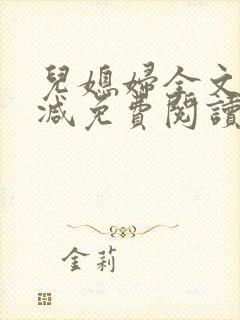 兒媳婦全文
減免費閱讀
金莉